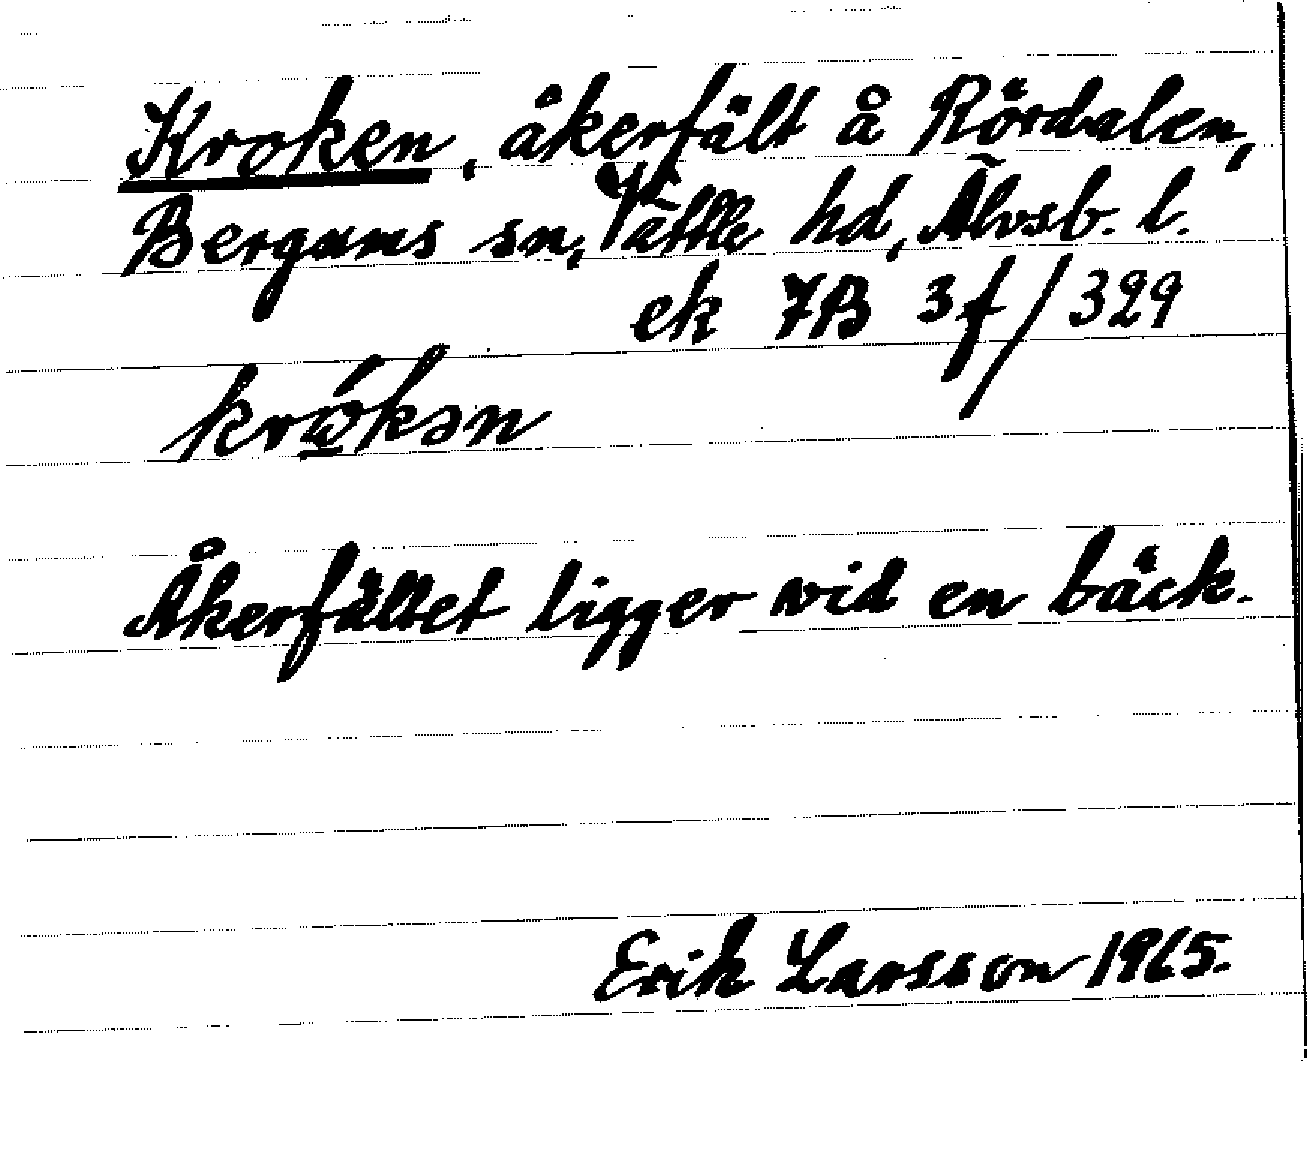 Kroken, åkerfält å Rördalen,
Bergums sn, Vättle hd, Älvsb. l.
ek 7B 3f/329
krǫ́kən
Åkerfältet ligger vid en bäck.
Erik Larsson 1965.